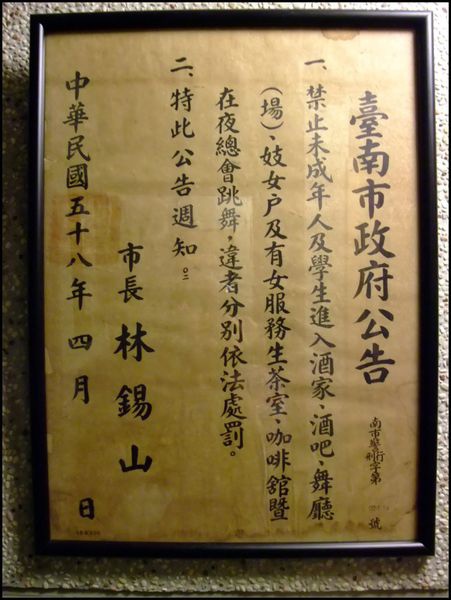 臺南市政府公告
南市警刑行字第
號
一、禁止未成年人及學生進入酒家、酒吧、舞廳
(場)、妓女户及有女服務生茶室、咖啡舘暨
在夜總會跳舞，違者分別依法處罰。
二、特此公告週知。
市長 林錫山
中華民國五十八年 四月 日